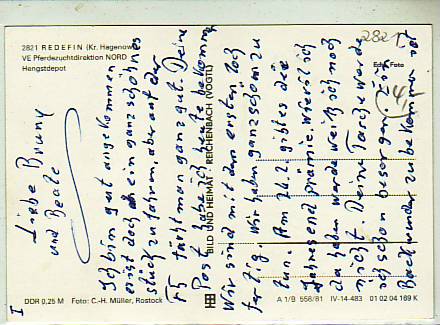 2821 REDEFIN (Kr. Hagenow)
VE Pferdezuchtdirektion NORD
Hengstdepot
2821
Echt Foto
4,-
Liebe Brunny
und Beate
Ich bin gut angekommen
es ist doch ein ganz schönes
Stück zu fahren, aber auf der
F5 fährt man ganz gut. Deine
Post habe ich heute bekommen
Wir sind mit dem ersten Loch
fertig. Wir haben ganz schön zu
tun. Am 24.2. gibt es die
Jahresend prämie. Wieviel ich
da haben werde weiß ich noch
nicht. Deine Tasche werde
ich schon besorgen. Ein
Backwunder zu bekommen ist
BILD UND HEIMAT · REICHENBACH (VOGTL)
DDR 0,25 M Foto: C.-H. Müller, Rostock
A 1/B 558/81 IV-14-483 01 02 04 169 K
I